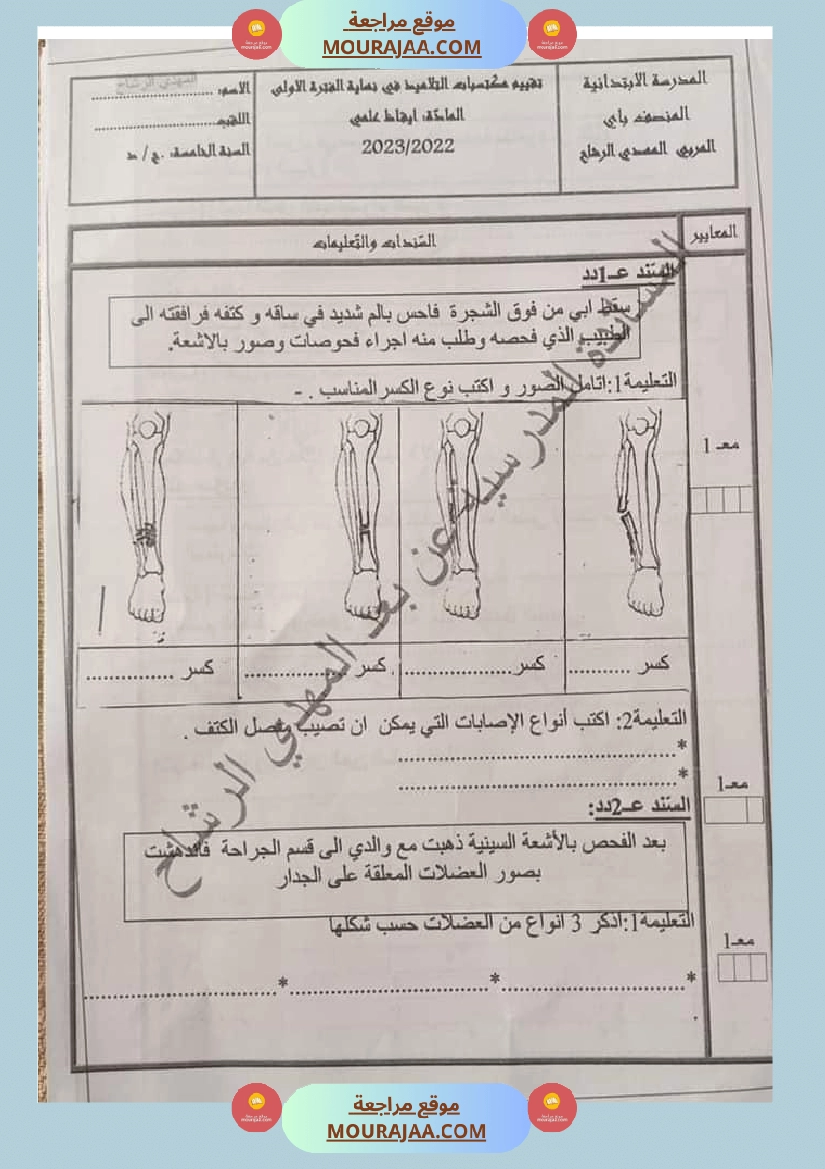 موقع مراجعة
MOURAJAA.COM
المدرسة الابتدائية
المنصف باي
المربي المهدي الرشاح
تقييم مكتسبات التلاميذ في نهاية الفترة الأولى
المادة: ايقاظ علمي
2023/2022
الاسم: ..............................
المهدي الرشاح
اللقب..............................
السنة الخامسة: ج / د
المعايير
السّندات والتّعليمات
السّند عـ1دد
سقط ابي من فوق الشجرة فاحس بالم شديد في ساقه و كتفه فرافقته الى
الطبيب الذي فحصه وطلب منه اجراء فحوصات وصور بالاشعة.
التعليمة1:اتامل الصور و اكتب نوع الكسر المناسب . -
معـ 1
كسر ...........
كسر ......................
كسر .....................
كسر ................
التعليمة2: اكتب أنواع الإصابات التي يمكن ان تصيب مفصل الكتف .
*.................................................
*.................................................
معـ1
السّند عـ2دد:
بعد الفحص بالأشعة السينية ذهبت مع والدي الى قسم الجراحة فاندهشت
بصور العضلات المعلقة على الجدار
التعليمة1:اذكر 3 انواع من العضلات حسب شكلها
معـ1
*..............................*..............................*..............................
المساندة المدرسية عن بعد المهدي الرشاح
موقع مراجعة
MOURAJAA.COM